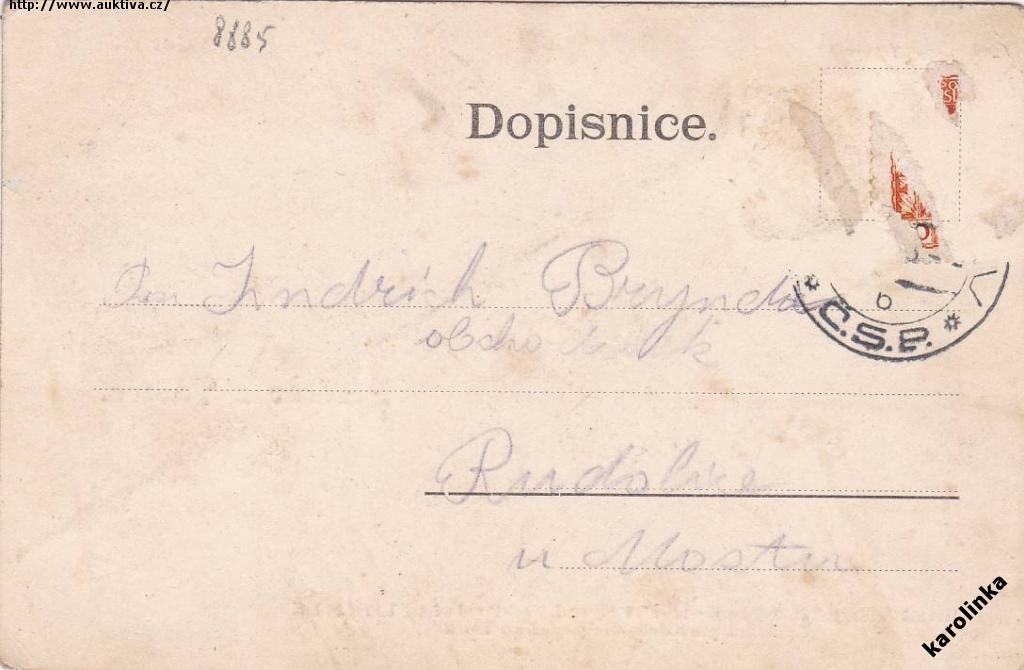 http://www.auktiva.cz/
8885
Dopisnice.
Pan Jindrich Brynda
obchodník
Rudolice
u Mostu
Č.S.P.
6
karolinka